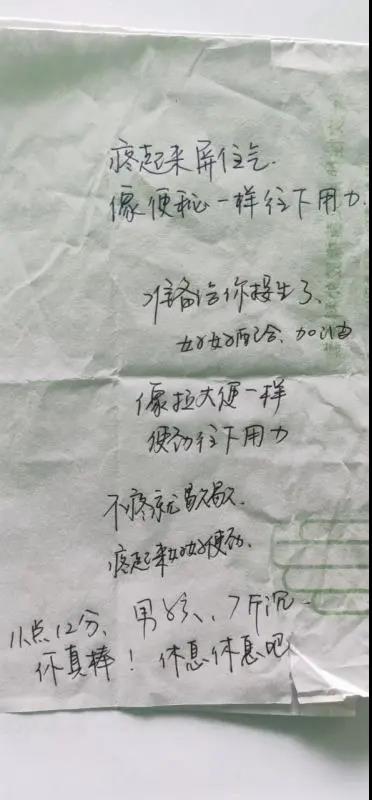 疼起来屏住气.
像便秘一样往下用力.
准备给你接生了、
好好配合、加油
像拉大便一样
使劲往下用力
不疼就歇歇.
疼起来好好使劲.
11点12分、男孩、7斤沉
你真棒！休息休息吧